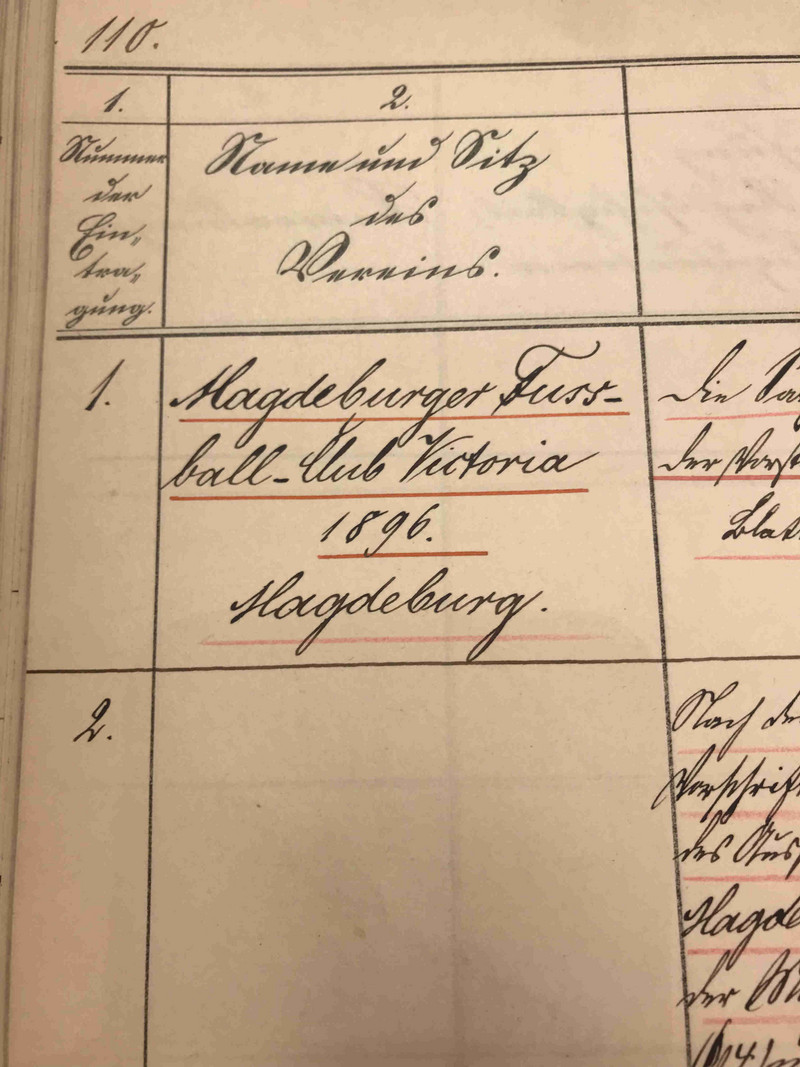 110.
1.
2.
Nummer
der
Ein-
tra-
gung.
Name und Sitz
des
Vereins.
1.
Magdeburger Fuss-
ball-Club Victoria
1896.
Magdeburg.
Die
der
2.
Nach
des
Magde
der